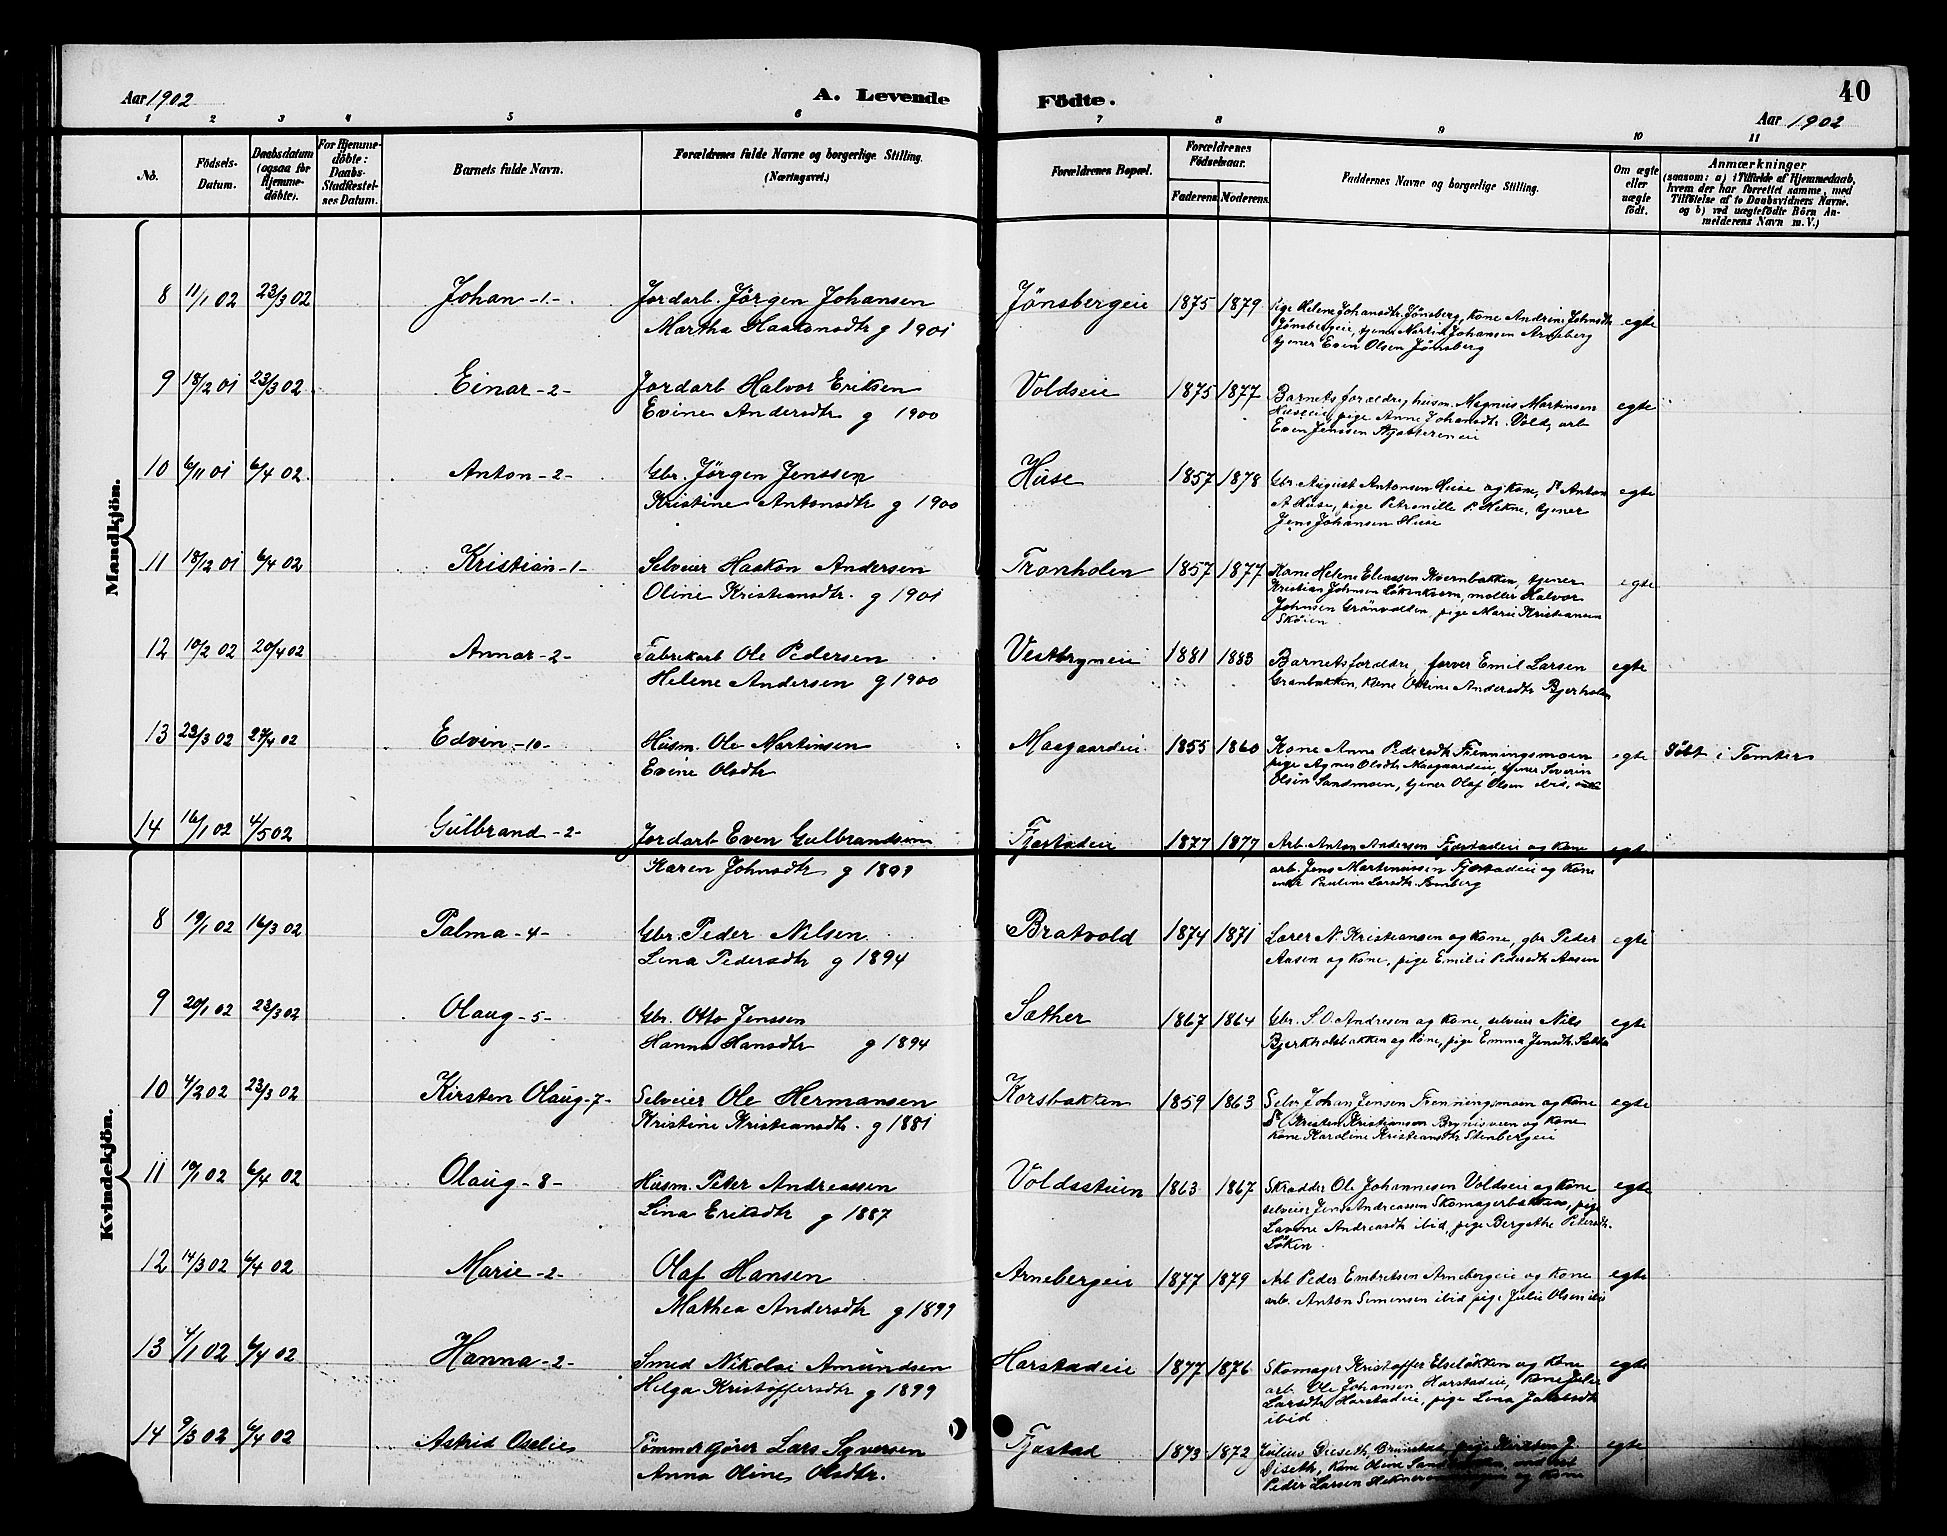 40
Aar 1902
A. Levende
Födte.
Aar 1902
1 2 3 4 5 6 7 8 9 10 11
No.
Födsels-Datum.
Daabsdatum (ogsaa for Hjemme-döbte).
For Hjemme-döbte: Daabs-Stadfestel-ses Datum.
Barnets fulde Navn.
Forældrenes fulde Navne og borgerlige Stilling. (Næringsvei.)
Forældrenes Bopæl.
Forældrenes Födselsaar.
Faderens Moderens
Faddernes Navne og borgerlige Stilling.
Om ægte eller uægte födt.
Anmærkninger
(saasom: a) i Tilfælde af Hjemmedaab,
hvem der har forrettet samme, med
Tilföielse af to Daabsvidners Navne.
og b) ved uægtefödte Börn An-
melderens Navn m.V.)
Mandkjön.
8 11/1 02 23/3 02 Johan -1- Jordarb. Jørgen Johansen Jønsbergeie 1875 1879 Pige Helene Johansdtr. Jønsberg, kone Andrine Johnsdtr egte
Martha Haakonsdtr g 1901 Jønsbergeie, tjener Martin Johansen Arneberg
tjener Even Olsen Jønsberg
9 18/12 01 23/3 02 Einar -2- Jordarb Halvor Eriksen Voldseie 1875 1877 Barnets forældre, husm. Magnus Martinsen egte
Evine Andersdtr g 1900 Huseeie, pige Anne Johansdtr. Vold, arb
Even Jenssen
10 6/11 01 6/4 02 Anton -2- Gbr. Jørgen Jenssen Huse 1857 1878 Gbr. August Antonsen Huse og kone, Sr Anton egte
Kristine Antonsdtr g 1900 A Huse, pige Petronille P. Hekne, tjener
Jens Johansen Huse
11 18/12 01 6/4 02 Kristian -1- Selveier Haakon Andersen Tronholen 1857 1877 Kone Helene Eliassen Kvernbakken, tjener egte
Oline Kristiansdtr. g 1901 Kristian Johnsen Løkenkvern, møller Halvor
Johnsen Grønvolden, pige Marie Kristiansen
Skøien
12 10/2 02 20/4 02 Annar -2- Fabrikarb Ole Pedersen Vestbyneie 1881 1883 Barnets forældre, farver Emil Larsen egte
Helene Andersen g 1900 Granbakken, kone Oline Andersdtr Bjerholen
13 23/3 02 27/4 02 Edvin -10- Husm. Ole Martinsen Maagaardeie 1855 1860 Kone Anne Pedersdtr Fenningsmoen egte Døbt i Tomter
Evine Olsdtr pige Agnes Olsdtr Maagaardeie, tjener Severin
Olsen Sandmoen, tjener Olaf Olsen ibid,
14 16/1 02 4/5 02 Gulbrand -2- Jordarb Even Gulbrandsen Fjæstadeie 1877 1877 Arb. Anton Andersen Fjæstadeie og kone egte
Karen Johnsdtr g 1899 arb. Jens Martinussen Fjæstadeie og kone
enke Pauline Larsdtr.
Kvindekjön.
8 19/1 02 16/3 02 Palma -4- Gbr. Peder Nilsen Bratvold 1874 1871 Lærer N. Kristiansen og kone, gbr Peder egte
Lina Pedersdtr g 1894 Aasen og kone, pige Emilie Pedersdtr Aasen
9 20/1 02 23/3 02 Olaug -5- Gbr. Otto Jenssen Sæther 1867 1864 Gbr. S. O. Andresen og kone, selveier Nils egte
Hanna Hansdtr g 1894 Bjerkholsbakken og kone, pige Emma Jensdtr. Sæther
10 4/2 02 23/3 02 Kirsten Olaug -7- Selveier Ole Hermansen Korsbakken 1859 1863 Selv Johan Jensen Fenningsmoen og kone egte
Kristine Kristiansdtr. g 1881 Sr Kristen Kristiansen Brynisveen og kone
kone Karoline Kristiansdtr Stenbergeie
11 19/1 02 6/4 02 Olaug -8- Husm. Peter Andreassen Voldsstuen 1863 1867 Skrædder Ole Johannesen Voldseie og kone egte
Lina Eriksdtr g 1887 selveier Jens Andreassen Skomagerbakken, pige
Lavine Andreasdtr ibid, pige Bergethe Petersdtr.
Løken
12 14/3 02 6/4 02 Marie -2- Olaf Hansen Arnebergeie 1877 1879 Arb Peder Embretsen Arnebergeie og kone egte
Mathea Andersdtr g 1899 arb. Anton Simensen ibid pige Julie Olsen ibid
13 4/1 02 6/4 02 Hanna -2- Smed Nikolai Amundsen Harstadeie 1877 1876 Skomager Kristoffer Elseløkken og kone egte
Helga Kristoffersdtr g 1899 arb. Ole Johansen Harstadeie, kone Julie
Larsdtr Harstadeie, pige Lina Jakobsdtr
ibid
14 9/3 02 6/4 02 Astrid Oselie Tømmerkjører Lars Syversen Fjæstad 1873 1872 Julius Diseth, Brunstad, pige Kirsten J egte
Anna Oline Olsdtr. Diseth, kone Oline
Peder Larsen og kone